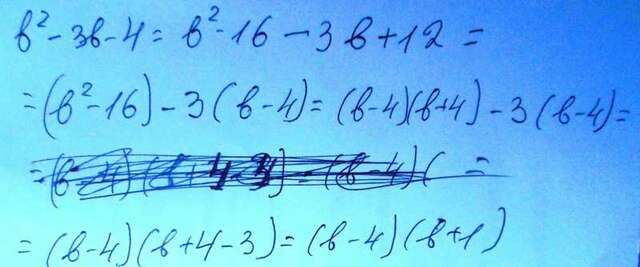 b² - 3b - 4 = b² - 16 - 3b + 12 =
= (b² - 16) - 3(b - 4) = (b - 4)(b + 4) - 3(b - 4) =
= (b - 4)(b + 4 - 3) = (b - 4)(b + 1)